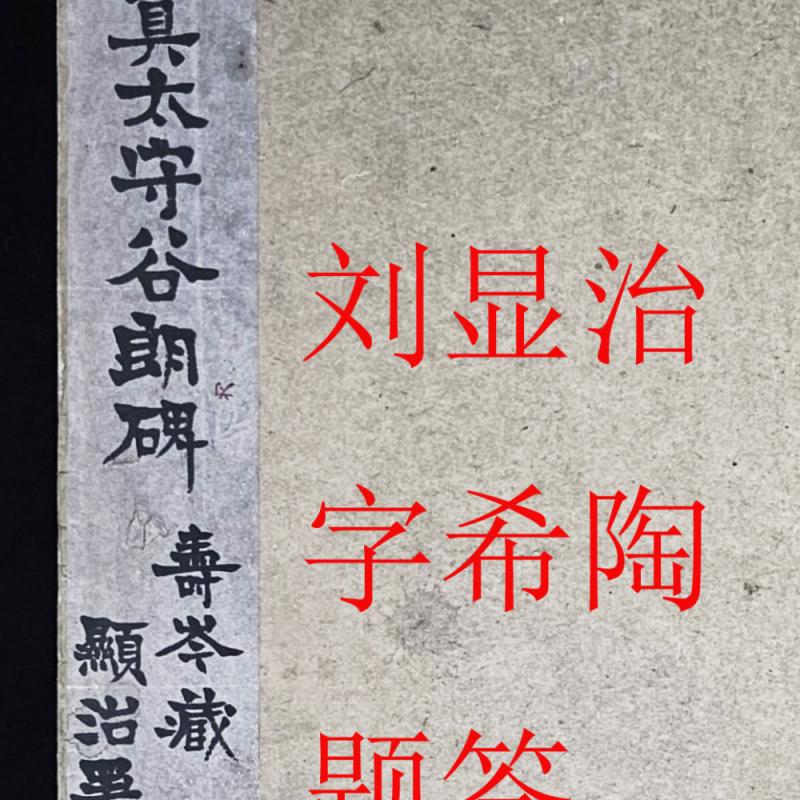 真太守谷朗碑
壽岑藏
顯治
刘显治
字希陶
题签